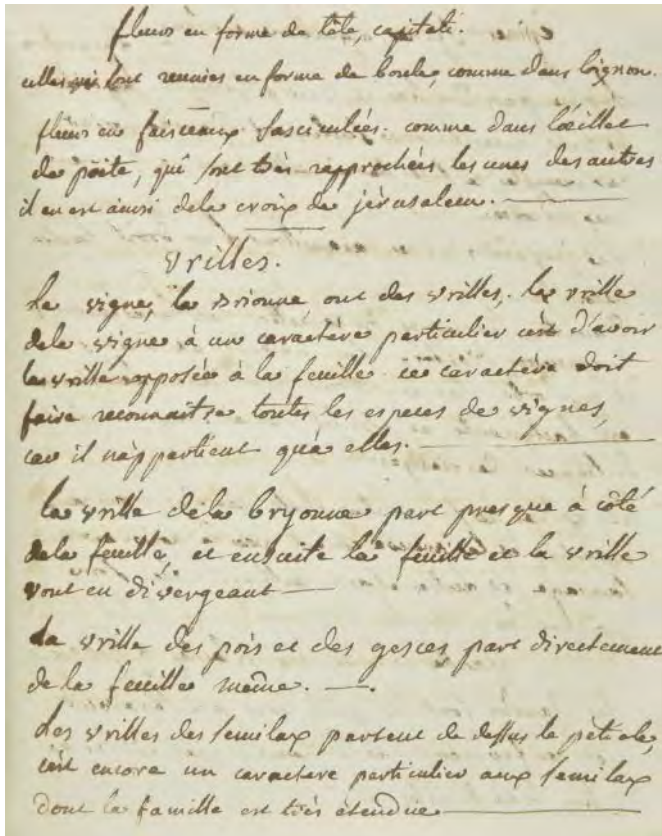 fleurs en forme de tète, capitati.
elles qui sont reunies en forme de boule, comme dans l'oignon.
fleurs en faisceaux fasciculées. comme dans l'œillet
de poëte, qui sont très rapprochées les unes des autres
il en est ainsi de la croix de jérusalem.
vrilles.
La vigne, la Brionne, ont des vrilles. la vrille
de la vigne à un caractère particulier c'est d'avoir
la vrille opposée à la feuille ce caractère doit
faire reconnaitre toutes les especes de vignes,
car il n'appartient qu'a elles.
la vrille de la bryonne part presque à côté
de la feuille, et ensuite la feuille et la vrille
vont en divergeant
La vrille des pois et des gesces part directement
de la feuille même.
Les vrilles des semilax partent de dessus le pétiole,
c'est encore un caractere particulier aux semilax
dont la famille est très etendue